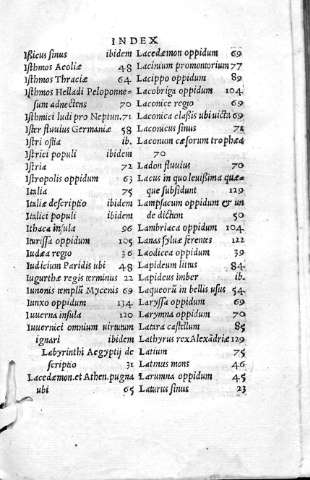 INDEX
Iſsicus sinus ibidem
Iſthmos Aeoliæ 48
Iſthmos Thraciæ 64
Iſthmos Helladi Peloponne-
sum adnectens 70
Iſthmici ludi pro Neptun. 71
Iſter fluuius Germaniæ 58
Iſtri oſtia ib.
Iſtrici populi ibidem
Iſtria 72
Iſtropolis oppidum 63
Italia 75
Italiæ deſcriptio ibidem
Italici populi ibidem
Ithaca inſula 96
Iturissa oppidum 105
Iudæa regio 36
Iudicium Paridis ubi 48
Iugurthæ regis terminus 22
Iunonis templū Mycenis 69
Iunxo oppidum 134
Iuuerna inſula 120
Iuuernici omnium uirtutum
ignari ibidem
Labyrinthi Aegyptij de
ſcriptio 31
Lacedæmon. et Athen. pugna
ubi 65
Lacedæmon oppidum 69
Lacinium promontorium 77
Lacippo oppidum 89
Lacobriga oppidum 104
Laconice regio 69
Laconica claſsis ubi uicta 69
Laconicus sinus 71
Laconum cæsorum trophæa
70
Ladon fluuius 70
Lacus in quo leuiſsima quæ-
que subsidunt 129
Lampſacum oppidum & un
de dictum 50
Lambriaca oppidum 104
Lanas syluæ ferentes 122
Laodicea oppidum 39
Lapideum litus 84.
Lapideus imber ib.
Laqueorū in bellis usus 54.
Laryssa oppidum 69
Larymna oppidum 70
Latara caſtellum 85
Lathyrus rex Alexādriæ 129
Latium 75
Latmus mons 46
Larumna oppidum 45
Laturus sinus 23